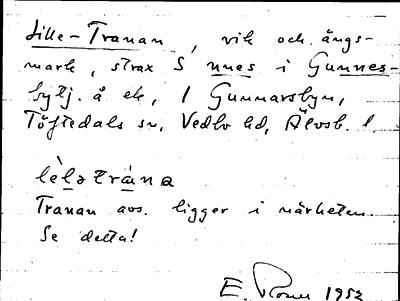 Lille-Tranan, vik och ängs-
mark, strax S nnes i Gunnes-
bytj. å ek, 1 Gunnarsbyn,
Töftedals sn, Vedbo hd, Älvsb. l
lèlətrána
Tranan avs. ligger i närheten.
Se detta!
E. 1952